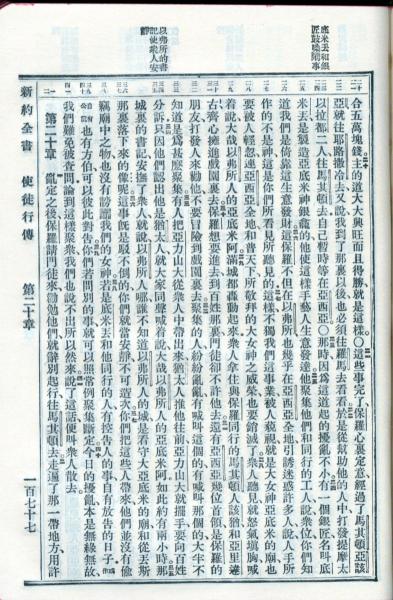 底米丟和銀
匠鼓噪鬧事
以弗所的書
記使衆人安
靜
合五萬塊錢主的道大大興旺而且得勝就是這樣〇這些事完了保羅心裏定意經過了馬其頓亞該
亞就往耶路撒冷去又說我到了那裏以後也必須往羅馬去看看於是從幫助他的人中打發提摩太
以拉都二人往馬其頓去自己暫時等在亞西亞〇那時因爲這道起的擾亂不小有一個銀匠名叫底
米丟是製造亞底米神銀龕的他使這樣手藝人生意發達他聚集他們和同行的工人說衆位你們知
道我們是倚靠這生意發財這保羅不但在以弗所也幾乎在亞西亞全地引誘迷惑許多人說人手所
作的不是神這是你們所看見所聽見的這樣不獨我們這事業被人藐視就是大女神亞底米的廟也
要被人輕忽連亞西亞全地和普天下所敬拜的大女神之威榮也要銷滅了衆人聽見就怒氣填胸喊
着說大哉以弗所人的亞底米阿滿城都轟動起來衆人拿住與保羅同行的馬其頓人該猶和亞里達
古齊心擁進戲園裏去保羅想要進去到百姓那裏門徒却不許他去還有亞西亞幾位首領是保羅的
朋友打發人來勸他不要冒險到戲園裏去聚集的人紛紛亂亂有喊叫這個的有喊叫那個的大半不
知道是爲甚麽聚集有人把亞力山大從衆人中帶出來猶太人推他往前亞力山大就擺手要向百姓
分訴只因他們認出他是猶太人就大家同聲喊着說大哉以弗所人的亞底米阿如此約有兩小時那
城裏的書記安撫了衆人就說以弗所人哪誰不知道以弗所人的城是看守大亞底米的廟和從丟斯
那裏落下來的像呢這事既是駁不倒的你們就當安靜不可造次你們把這些人帶來他們並沒有偷
竊廟中之物也沒有謗讟我們的女神若是底米丟和他同行的人有控告人的事自有放告的日子
也有方伯可以彼此對告你們若問別的事就可以照常例聚集斷定今日的擾亂本是無緣無故
我們難免被查問論到這樣聚衆我們也說不出所以然來說了這話便叫衆人散去
第二十章 亂定之後保羅請門徒來勸勉他們就辭別起行往馬其頓去走遍了那一帶地方用許
新約全書 使徒行傳 第二十章 一百七十七